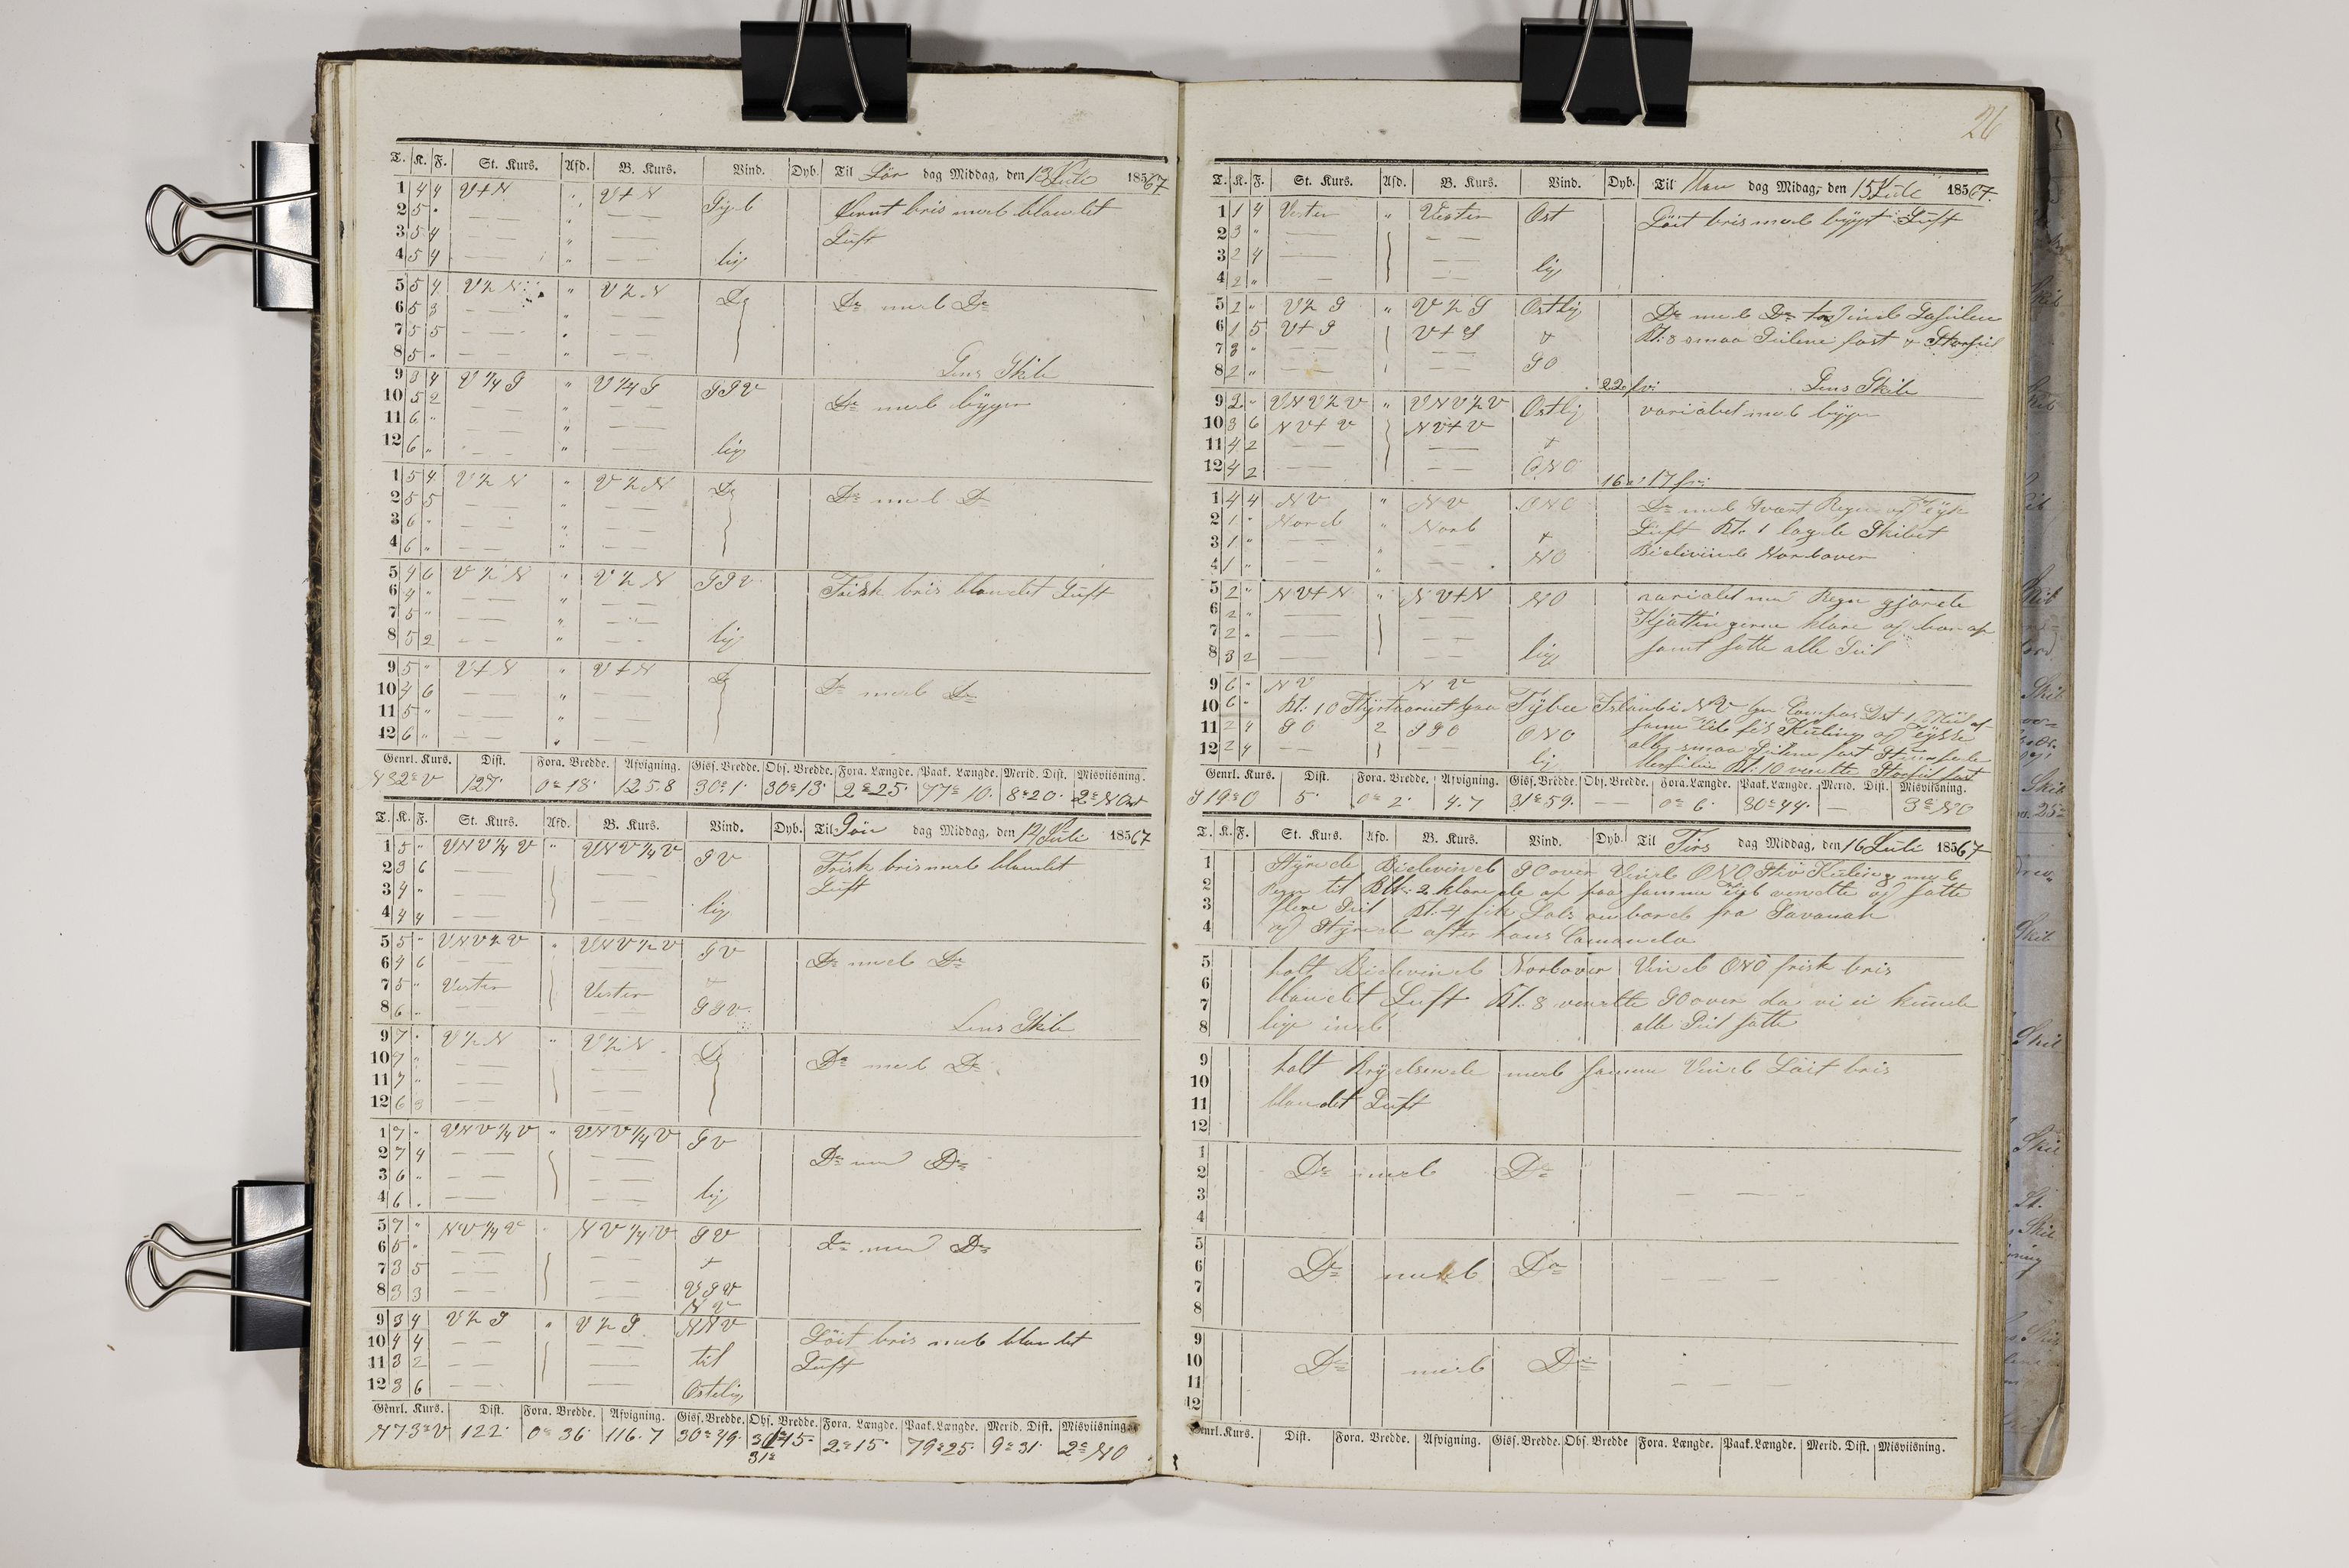 26
T. K. F. St. Kurs. Afd. B. Kurs. Vind. Dyb. Til Lör dag Middag, den 13 Juli 1867
1 4 4 V t N " V t N Syd Jevnt bris med blandet
2 5 " — — " — — Luft
3 5 4 — — " — —
4 5 4 — — " — — lig
5 5 4 V ½ N " V ½ N Do Do med Do
6 5 3 — — " — —
7 5 5 — — " — —
8 5 " — — " — — Lens Skib
9 3 4 V ¼ S " V ¼ S SSV
10 5 2 — — " — — Do med byger
11 6 " — — " — —
12 6 " — — " — — lig
1 5 4 V ½ N " V ½ N Do Do med Do
2 5 5 — — " — —
3 6 " — — " — —
4 6 " — — " — —
5 4 6 V ½ N " V ½ N SSV Frisk bris blandet Luft
6 4 " — — " — —
7 5 " — — " — —
8 5 2 — — " — — lig
9 5 " V t N " V t N Do
10 4 6 — — " — — Do med Do
11 5 " — — " — —
12 6 " — — " — —
Genrl. Kurs. Dist. Fora. Bredde. Afvigning. Gisf. Bredde. Obs. Bredde. Fora. Længde. Paak. Længde. Merid. Dist. Misviisning.
N 82° V 127. 0° 18. 125.8 30° 1. 30° 13. 2° 25. 77° 10. 8° 20. 2° NO
T. K. F. St. Kurs. Afd. B. Kurs. Vind. Dyb. Til Sön dag Middag, den 14 Juli 1867
1 5 " VNV ¼ V " VNV ¼ V SV Frisk bris med blandet
2 3 6 — — — — Luft
3 4 " — — — —
4 4 4 — — — — lig
5 5 " VNV ½ V " VNV ½ V SV
6 4 6 — — — — Do med Do
7 5 " Vesten Vesten t
8 6 " — — — — SSV Lens Skib
9 7 " V ½ N " V ½ N Do
10 7 " — — — — Do med Do
11 7 " — — — —
12 6 3 — — — —
1 7 " VNV ¼ V " VNV ¼ V SV
2 7 4 — — — — Do med Do
3 6 " — — — —
4 6 " — — — — lig
5 7 " NV ¼ V " NV ¼ V SV
6 5 " — — — — Do med Do
7 3 5 — — — — t
8 3 3 — — — — VSV
NV
9 3 4 V ½ S " V ½ S NNV
10 4 4 — — — — Löit bris med blandet
11 3 2 — — — — til Luft
12 3 6 — — — — Ostelig
Genrl. Kurs. Dist. Fora. Bredde. Afvigning. Gisf. Bredde. Obs. Bredde. Fora. Længde. Paak. Længde. Merid. Dist. Misviisning.
N 73° V 122. 0° 36. 116.7 30° 49. 45. 2° 15. 79° 25. 9° 31. 2° NO
31°
T. K. F. St. Kurs. Afd. B. Kurs. Vind. Dyb. Til Man dag Midag, den 15 Juli 1867.
1 1 4 Vesten " Vesten Ost Löit bris med bygt Luft
2 3 " — — — —
3 2 4 — — — —
4 2 " — — — — lig
5 2 " V ½ S " V ½ S Ostlig Do med Do ind
6 1 5 V t S V t S t Kl: 8 smaa Seilene fast
7 3 " — — — —
8 2 " — — — — SO
22 fv: Lens Skib
9 2 " VNV ½ V " VNV ½ V Ostlig variabel med byger
10 3 6 NV t V NV t V
11 4 2 — — — — t
12 4 2 — — — — ONO
16 a 17 fv:
1 4 4 NV " NV ONO Do med Svært Regn og Tyk
2 1 " Nord " Nord Luft Kl: 1 lagde Skibet
3 1 " — — — — t Bidevind Nordover
4 1 " — — — — NO
5 2 " NV t N " NV t N NO variabel med Regn gjorde
6 2 " — — — — Kjættingerne klare og
7 2 " — — — — samt satte alle Seil
8 3 2 — — — — lig
9 6 " NV NV
10 6 " Kl: 10 Fyrtaarnet paa Tybee Island i NV
11 2 4 SO 2 SSO ONO
12 2 4 — — — — lig Kl: 10 vendte
Genrl. Kurs. Dist. Fora. Bredde. Afvigning. Gisf. Bredde. Obs. Bredde. Fora. Længde. Paak. Længde. Merid. Dist. Misviisning.
S 19° O 5. 0° 2. 4.7 31° 59. — — 0° 6. 80° 44. — 3° NO
T. K. F. St. Kurs. Afd. B. Kurs. Vind. Dyb. Til Tirs dag Middag, den 16 Juli 1867
1 Styrede Bidevind SO over Vind ONO Stiv Kuling med
2 Regn til Kl: 2 klarede af paa samme Tid vendte og satte
3 flere Seil Kl. 4 fik Lods ombord fra Savanah
4 og Styrede efter hans Comando
5 holt Bidevind Nordover Vind ONO frisk bris
6 blandet Luft Kl: 8 vendte SO over da vi ei kunde
7 lige ind
8 alle Seil satte
9 holt Krydsende med samme Vind Löit bris
10
11 blandet Luft
12
1
2 Do med Do
3 — — —
4
5
6 Do med Do
7 — — —
8
9
10 Do med Do
11 — — —
12
Genrl. Kurs. Dist. Fora. Bredde. Afvigning. Gisf. Bredde. Obs. Bredde Fora. Længde. Paak. Længde. Merid. Dist. Misviisning.